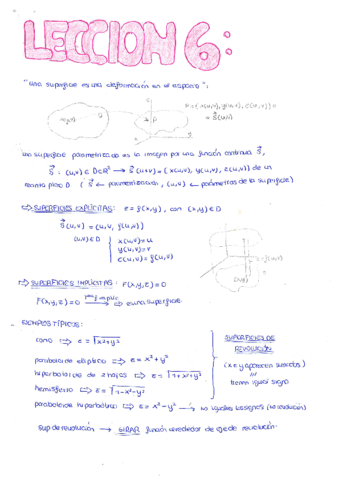 LECCION 6:
"una superficie es una deformación en el espacio":
P = (x(u,v), y(u,v), z(u,v)) =
= S⃗(u,v)
una superficie parametrizada es la imagen por una función continua S⃗,
S⃗ : (u,v) ∈ D⊂R² → S⃗(u,v) = (x(u,v), y(u,v), z(u,v)) de un
recinto plano D (S⃗ ← parametrización, (u,v) ← parámetros de la superficie)
⇨ SUPERFICIES EXPLÍCITAS: z = f(x,y), con (x,y) ∈ D
S⃗(u,v) = (u,v, f(u,v))
(u,v) ∈ D
x(u,v)=u
y(u,v)=v
z(u,v)=f(u,v)
z=f(u,v)
(u,v)
⇨ SUPERFICIES IMPLÍCITAS: F(x,y,z)=0
F(x,y,z)=0 → es una superficie.
EJEMPLOS TÍPICOS:
cono ⇨ z = √x²+y²
paraboloide elíptico ⇨ z = x²+y²
hiperboloide de 2 hojas ⇨ z = √1+x²+y²
hemisferio ⇨ z = √1-x²-y²
SUPERFICIES DE
REVOLUCIÓN
(x e y aparecen
tienen igual signo
paraboloide hiperbólico ⇨ z = x²-y² → no iguales los signos (no revolución)
sup de revolución → GIRAR función alrededor de eje de revolución.